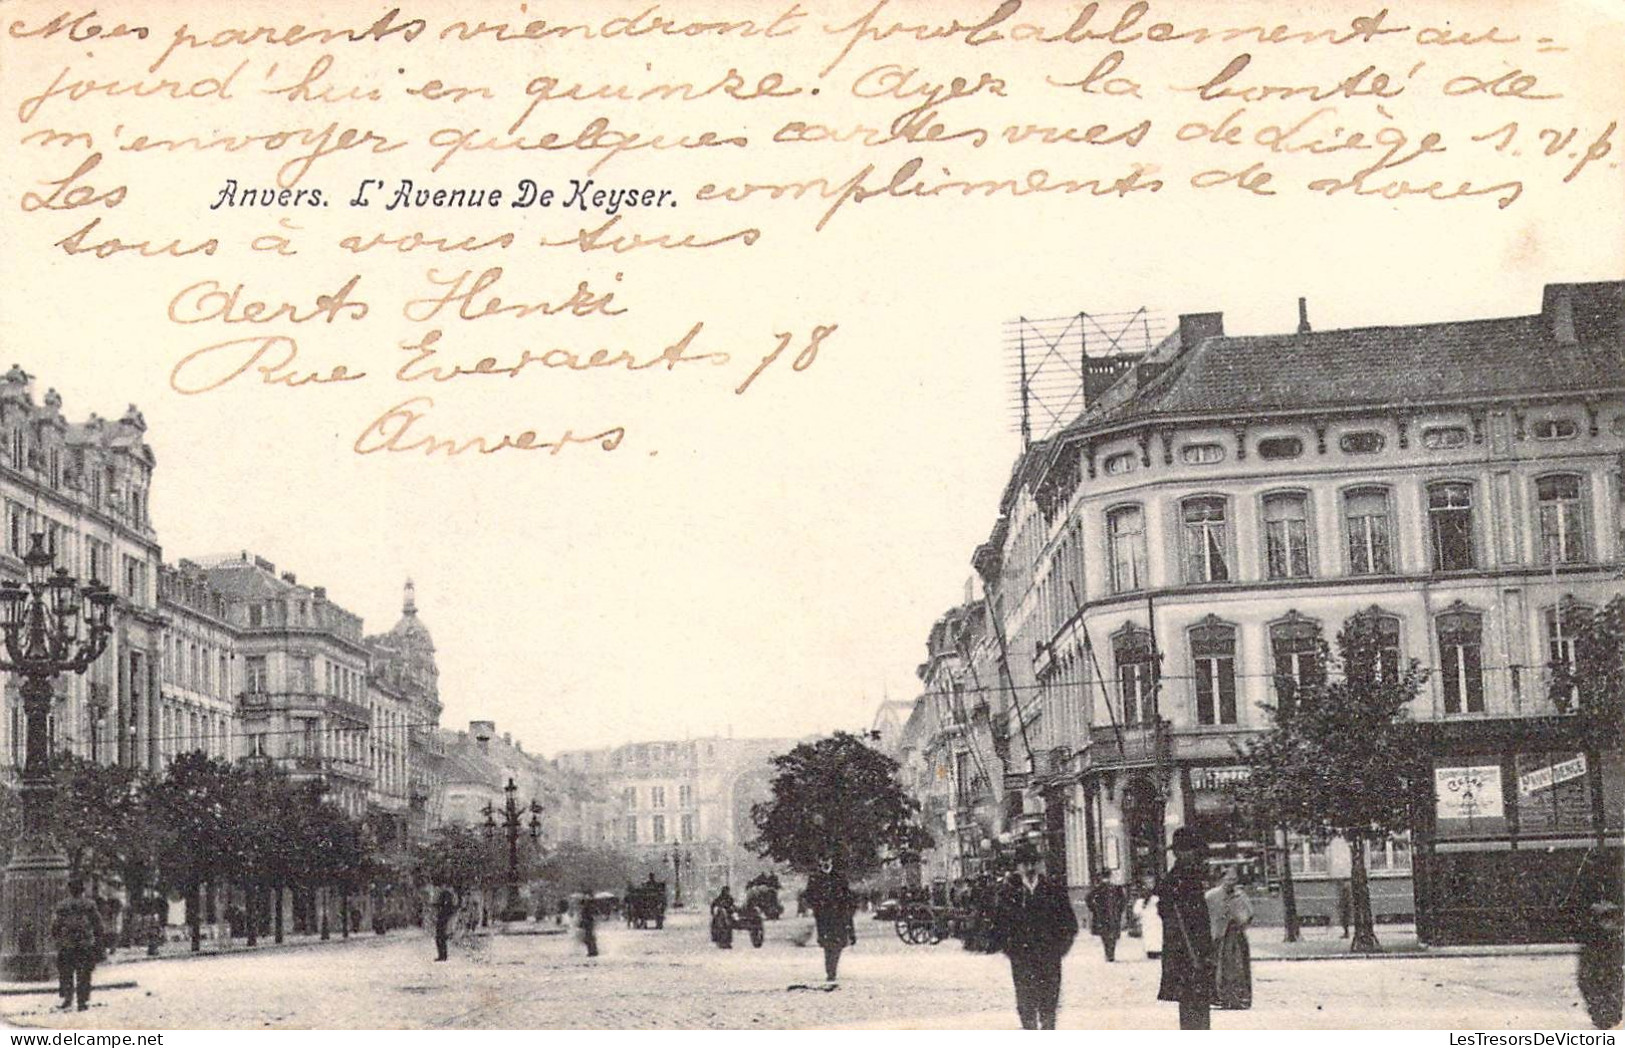 Mes parents viendront probablement au=
jourd'hui en quinze. Ayez la bonté de
m'envoyer quelques cartes vues de Liège s.v.p.
Les compliments de nous
Anvers. L'Avenue De Keyser.
tous à vous tous
Aerts Henri
Rue Everaerts 78
Anvers.
LesTresorsDeVictoria